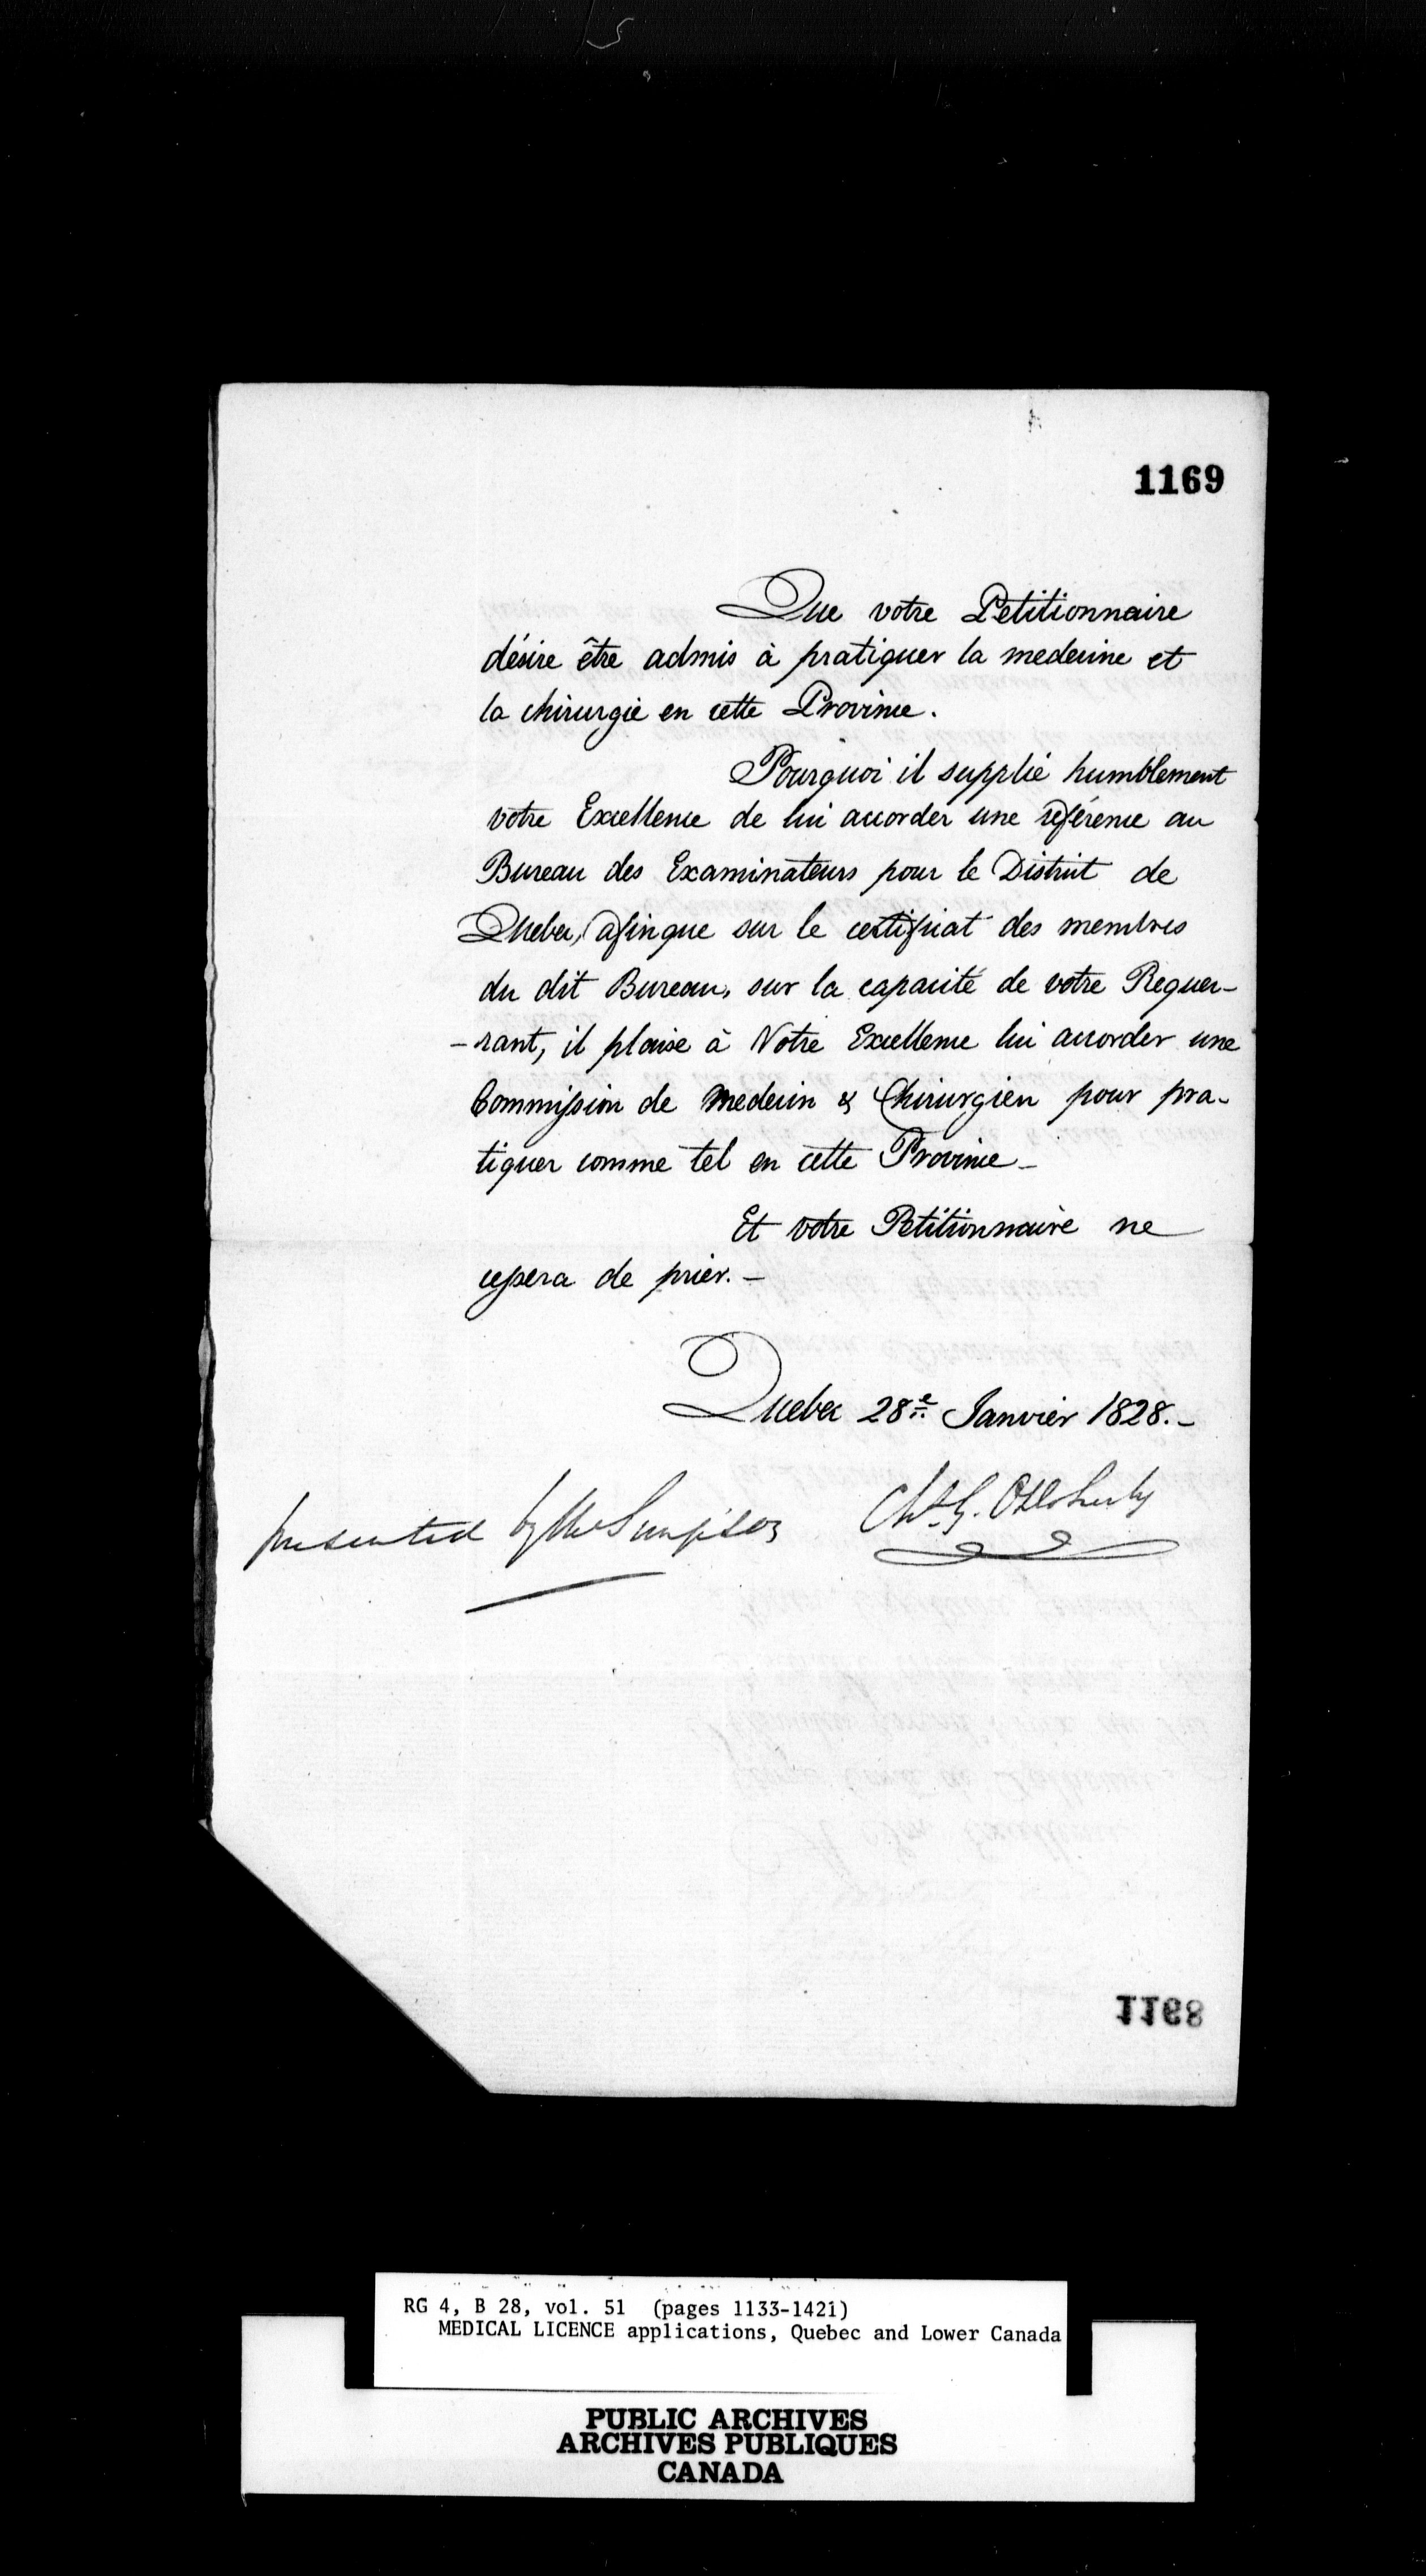 1169
Que votre Petitionnaire
désire être admis à pratiquer la medecine et
la chirurgie en cette Province.
Pourquoi il supplie humblement
votre Excellence de lui accorder une référence au
Bureau des Examinateurs pour le District de
Quebec, afinque sur le certificat des membres
du dit Bureau, sur la capacité de votre Requer-
-rant, il plaise à Votre Excellence lui accorder une
Commission de Medecin & Chirurgien pour pra-
tiquer comme tel en cette Province_
Et votre Petitionnaire ne
cessera de prier._
Quebec 28e Janvier 1828._
presented by Mr Simpson
Chs. G. O'Doherty
1168
RG 4, B 28, vol. 51 (pages 1133-1421)
MEDICAL LICENCE applications, Quebec and Lower Canada
PUBLIC ARCHIVES
ARCHIVES PUBLIQUES
CANADA